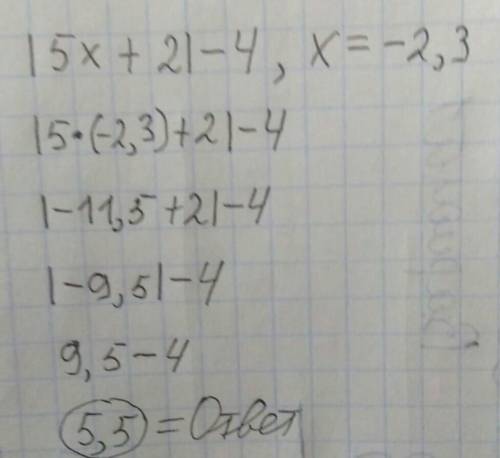 |5x + 2| - 4, x = -2,3
|5·(-2,3)+2|-4
|-11,5+2|-4
|-9,5|-4
9,5-4
5,5 = Ответ